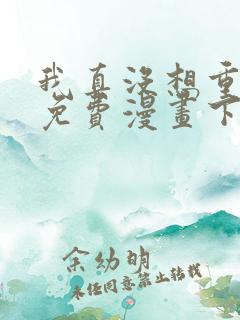 我真没想重
免费漫畫下
余幼明
未经同意禁止转载